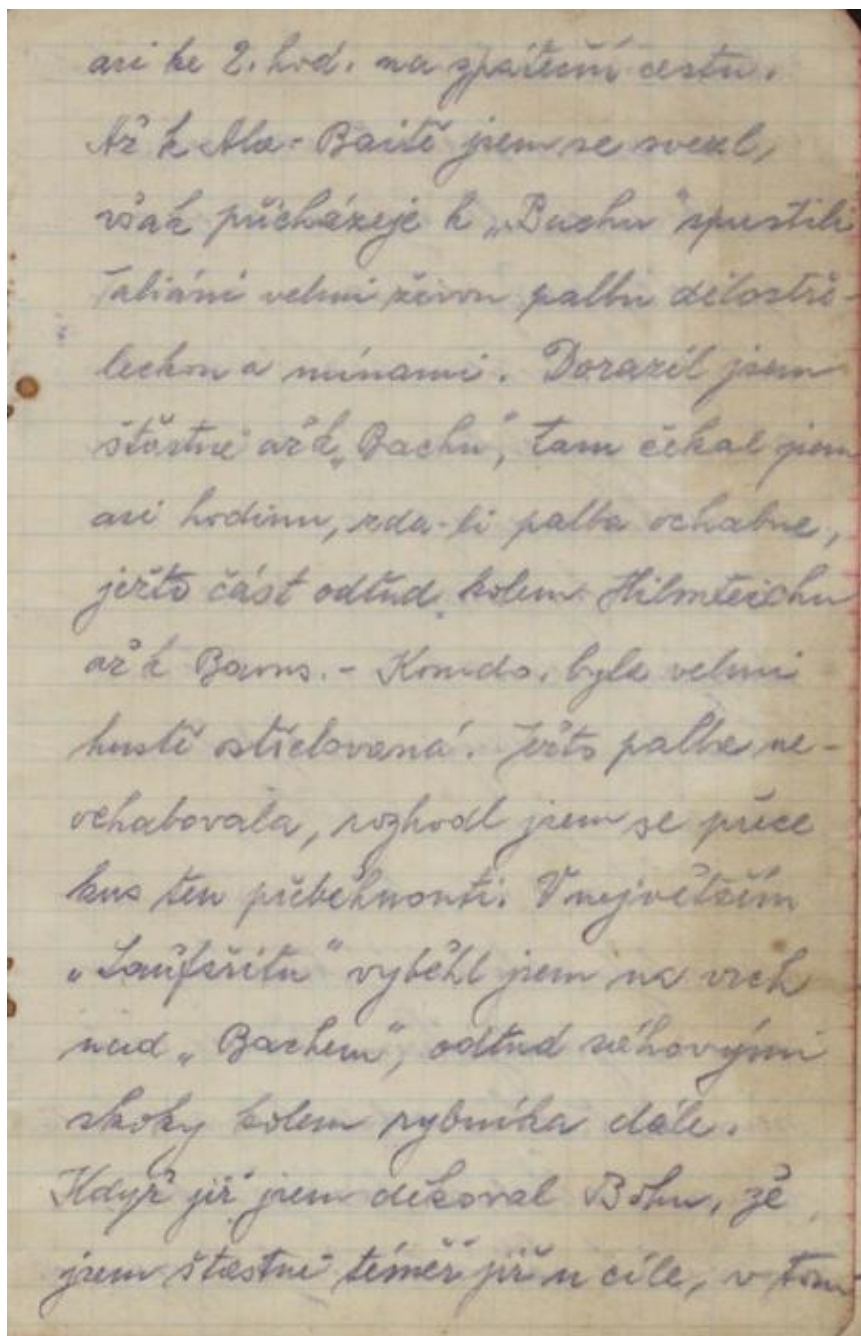 asi ke 2. hod. na zpáteční cestu.
Až k Ala-Baitě jsem se svezl,
však přicházeje k „Bachu" spustili
Taliáni velmi živou palbu dělostře-
leckou a mínami. Dorazil jsem
šťastně až k „Bachu", tam čekal jsem
asi hodinu, zda-li palba ochabne,
ježto část odtud kolem Hilmteichu
až k Baons.-Komdo. byla velmi
hustě ostřelovaná. Ježto palba ne-
ochabovala, rozhodl jsem se přece
kus ten přeběhnouti. V největším
„Laufšritu" vyběhl jsem na vrch
nad „Bachem", odtud sáhovými
skoky kolem rybníka dále.
Když již jsem děkoval Bohu, že
jsem šťastně téměř již u cíle, v tom